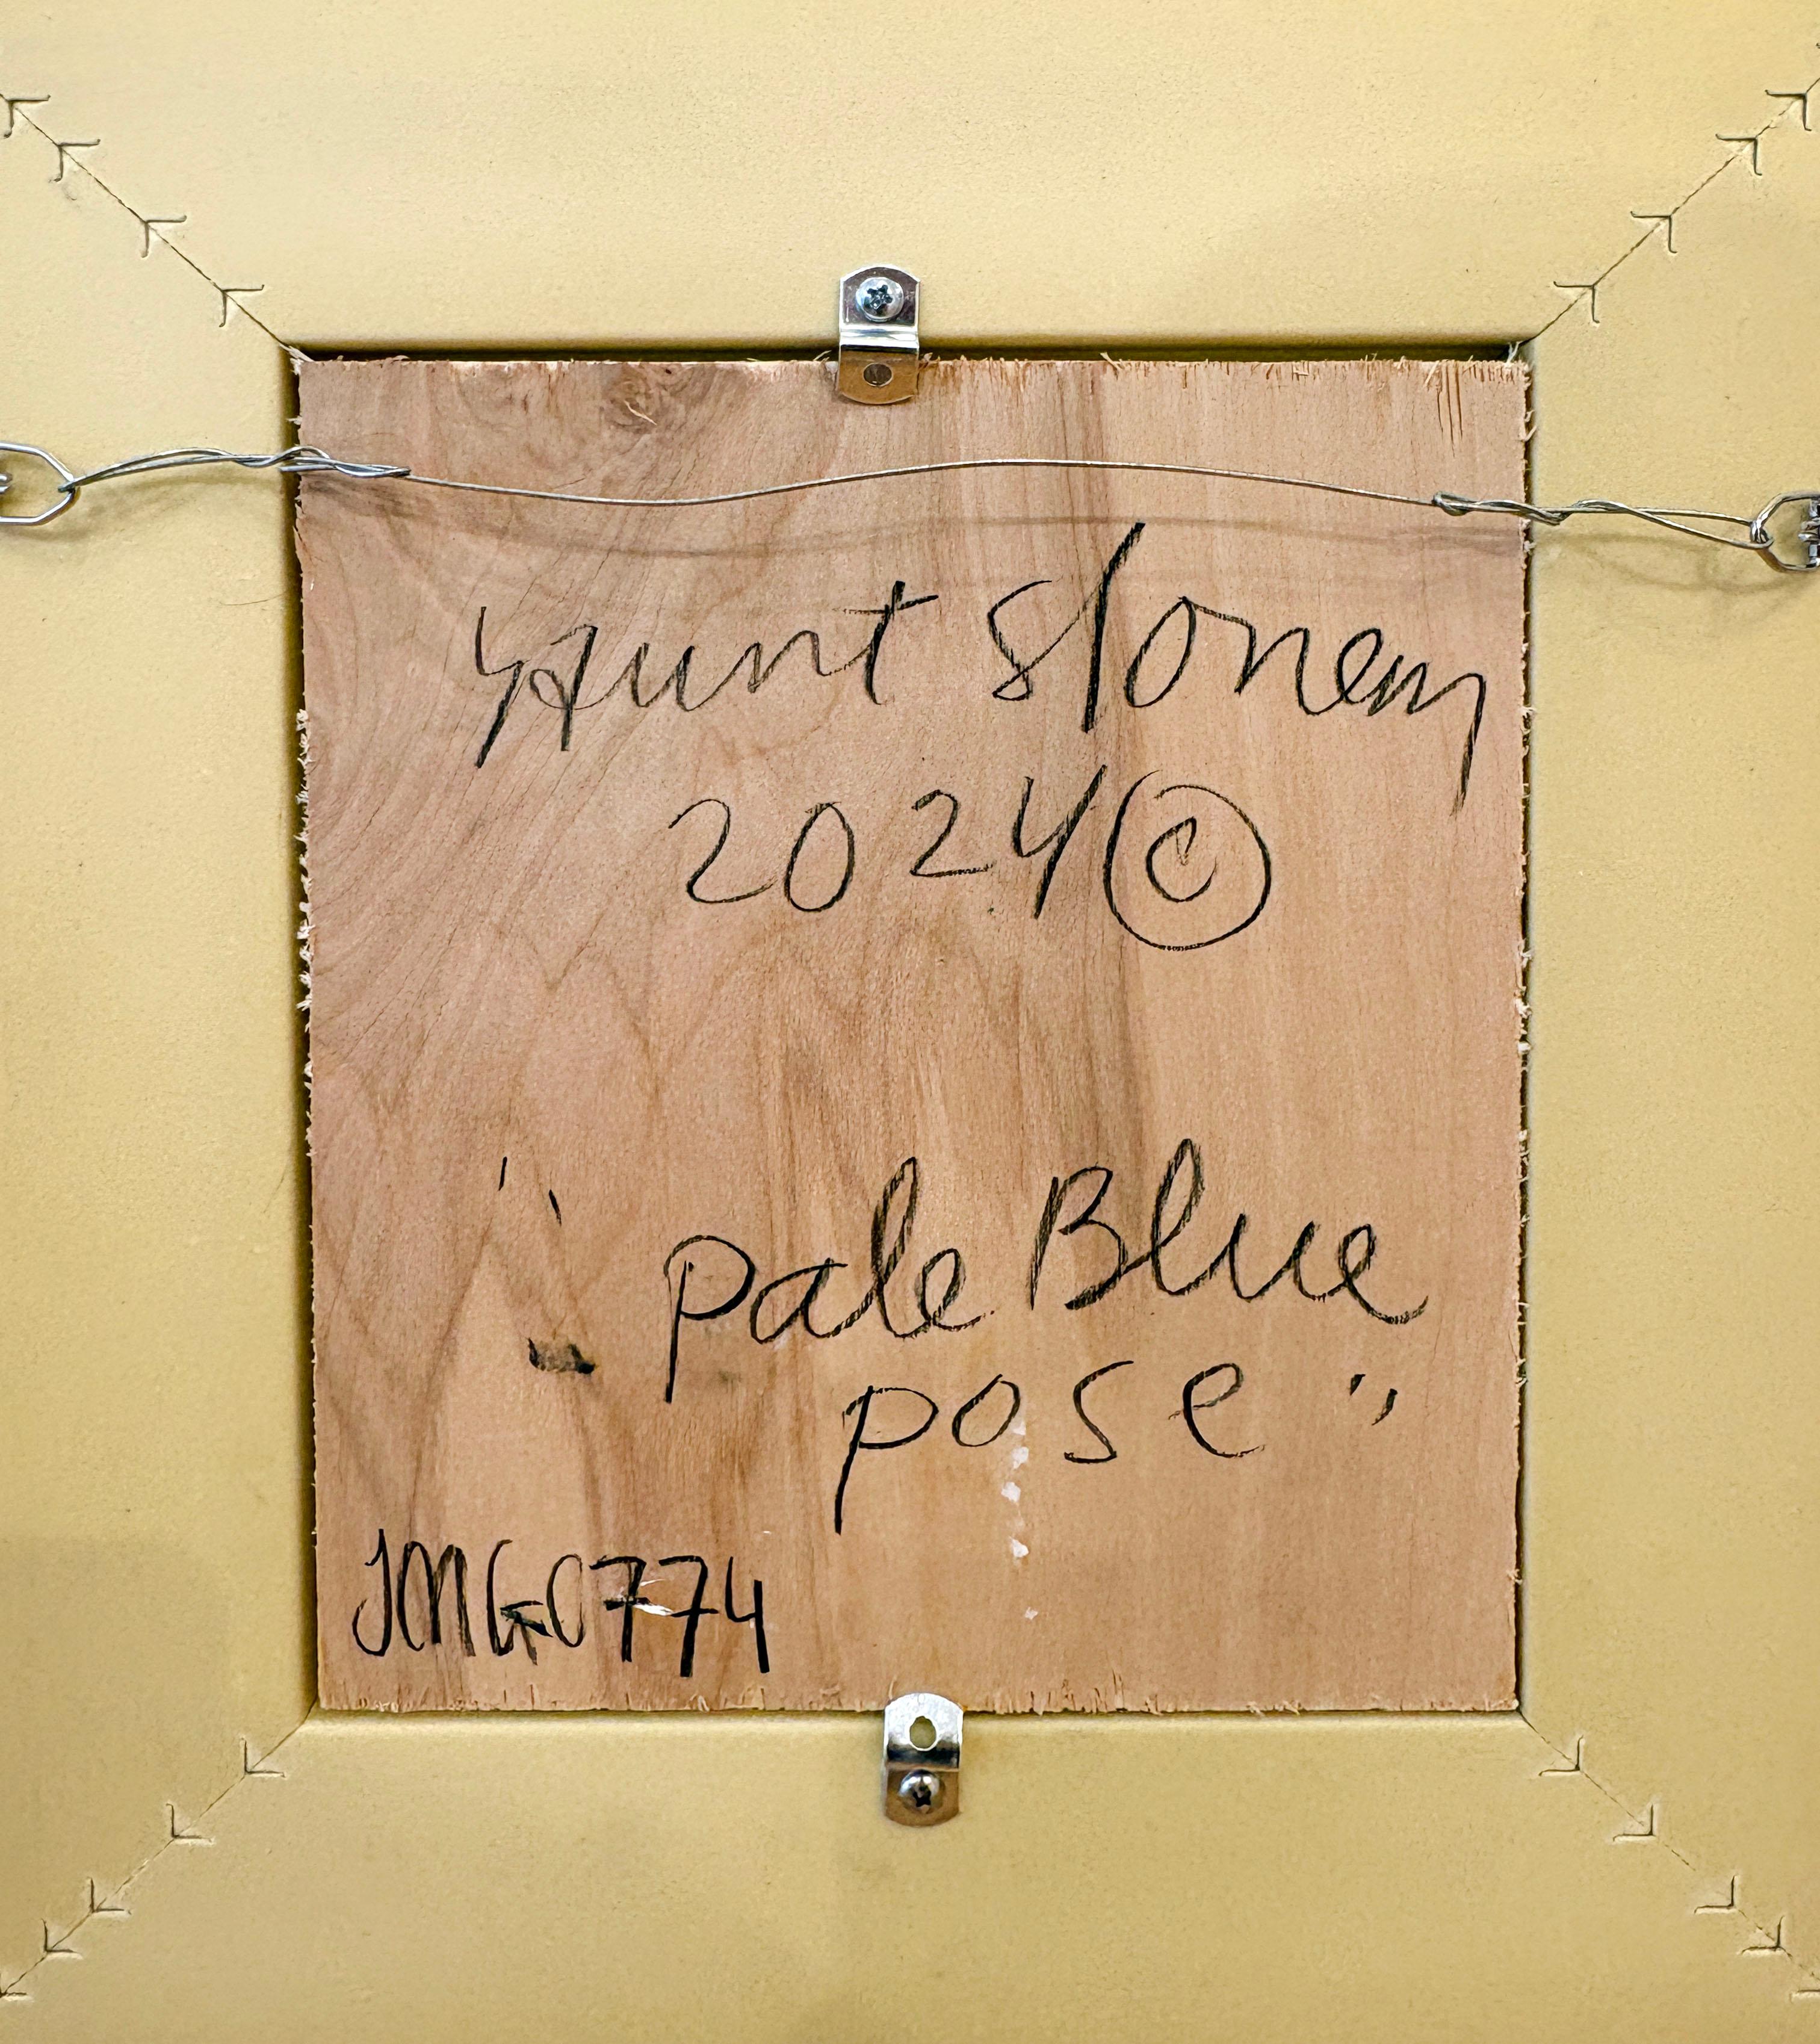 Hunt Slonem
2024 ©
"Pale Blue
pose"
JMG0774